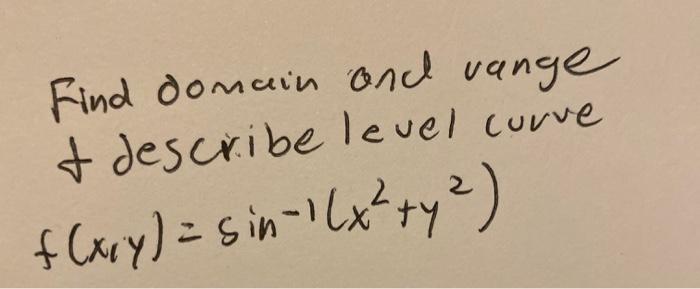 Find domain and range
+ describe level curve
f(x,y) = sin⁻¹(x²+y²)